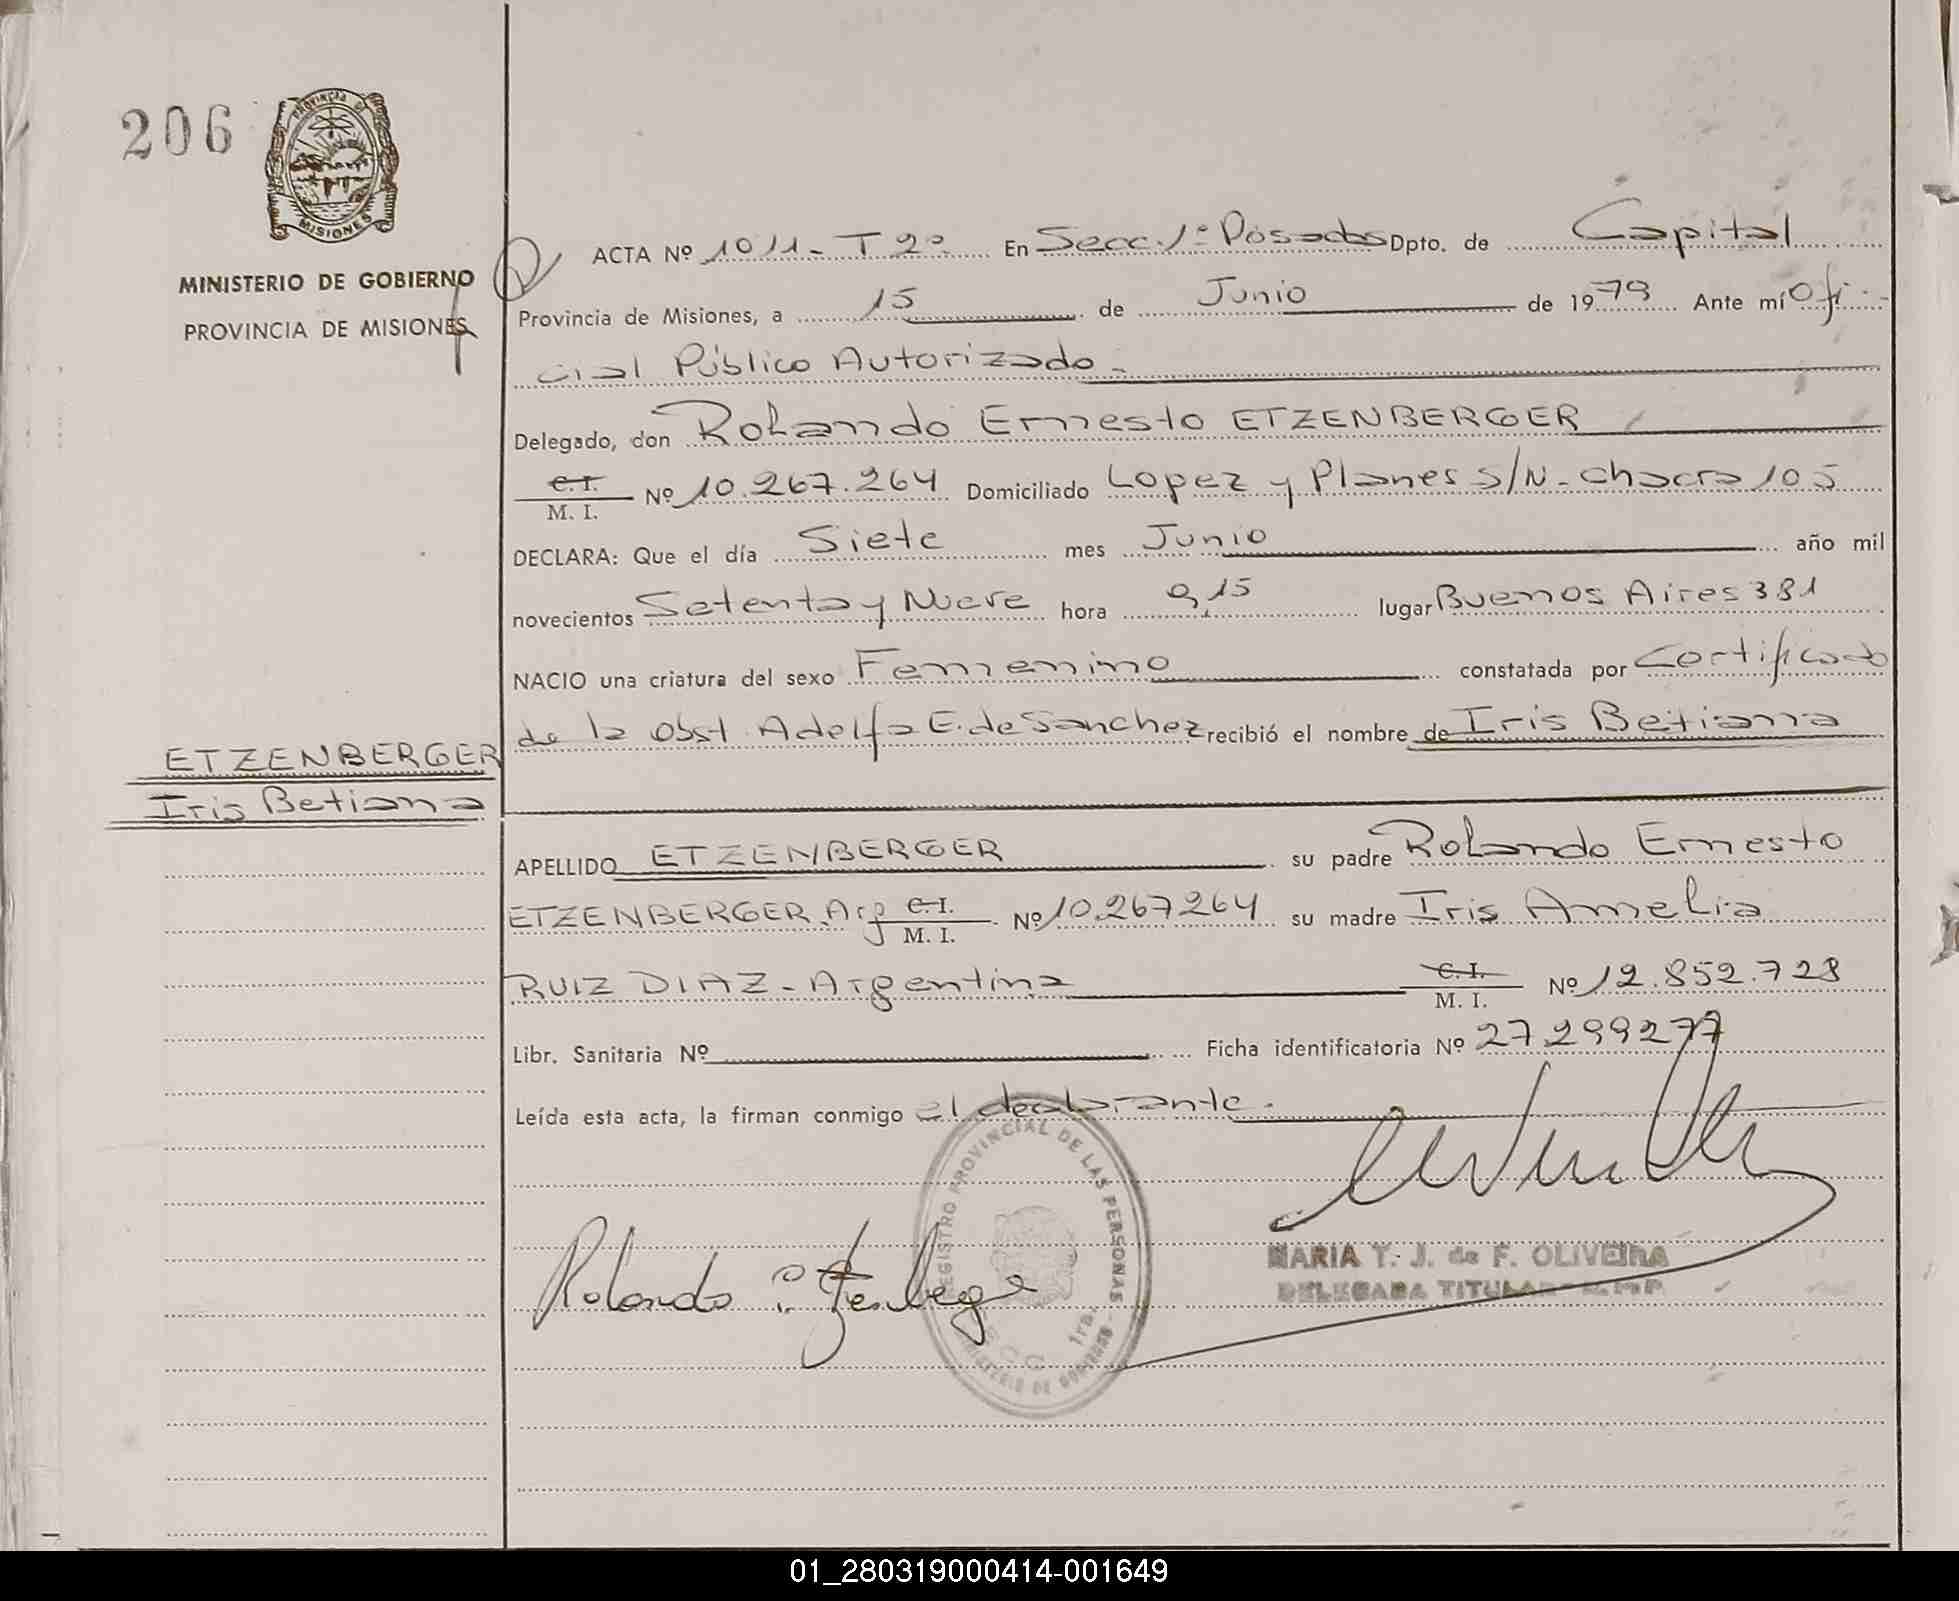 206
PROVINCIA DE
MISIONES
MINISTERIO DE GOBIERNO
PROVINCIA DE MISIONES
ACTA Nº 1011-T2º En Secc. 1º Posadas Dpto. de Capital
Provincia de Misiones, a 15 de Junio de 1979 Ante mí Ofi-
cial Público Autorizado.-
Delegado, don Rolando Ernesto ETZENBERGER
C.I.
M. I. Nº 10.267.264 Domiciliado Lopez y Planes S/N- chacra 105
DECLARA: Que el día Siete mes Junio año mil
novecientos Setenta y Nueve hora 9,15 lugar Buenos Aires 381
NACIO una criatura del sexo Femenino constatada por Certificado
de la Obst. Adelfa E. de Sanchez recibió el nombre de Iris Betiana
ETZENBERGER
Iris Betiana
APELLIDO ETZENBERGER su padre Rolando Ernesto
ETZENBERGER Arg C.I.
M. I. Nº 10.267264 su madre Iris Amelia
RUIZ DIAZ - Argentina C.I.
M. I. Nº 12.852.728
Libr. Sanitaria Nº Ficha identificatoria Nº 27.299277
Leída esta acta, la firman conmigo el declarante.
REGISTRO PROVINCIAL DE LAS PERSONAS
MINISTERIO DE GOBIERNO
1ra.
Rolando
MARIA T. J. de F. OLIVEIRA
DELEGADA TITULAR
01_280319000414-001649